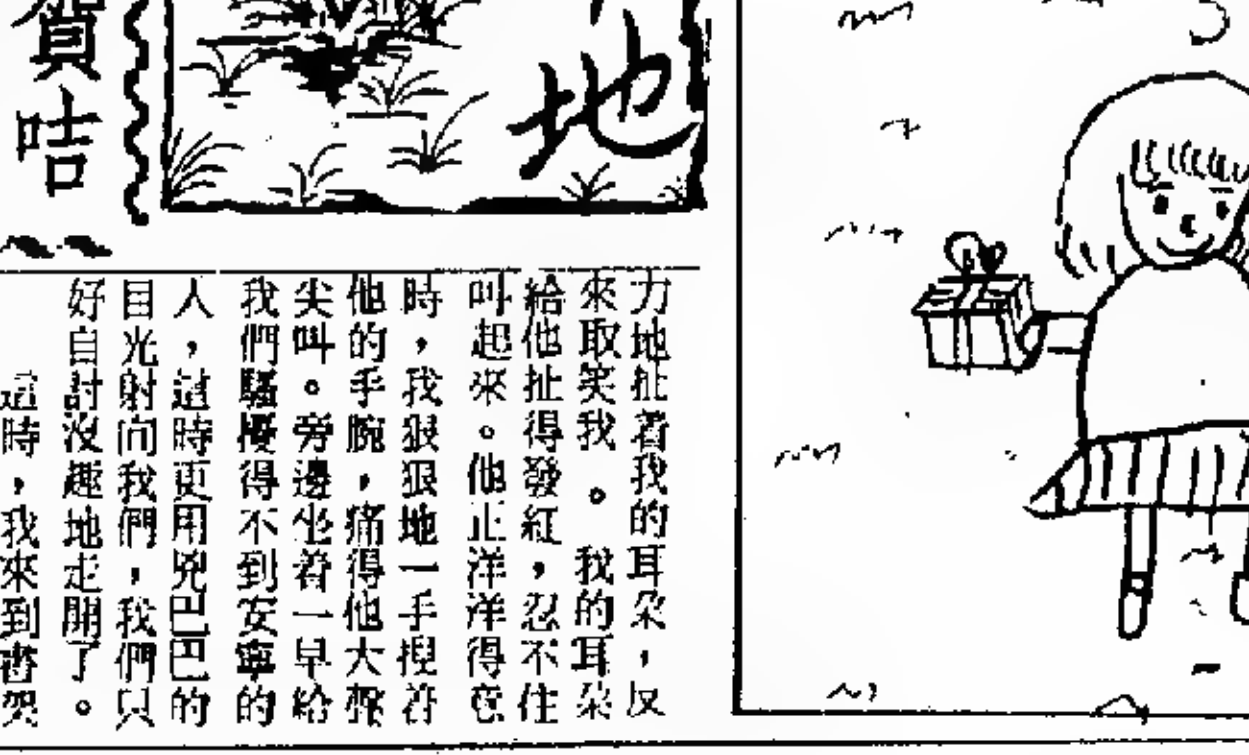 地
賀咭
力地扯着我的耳朵，反
來取笑我。我的耳朵
給他扯得發紅，忍不住
叫起來。他正洋洋得意
時，我狠狠地一手捏着
他的手腕，痛得他大聲
尖叫。旁邊坐着一早給
我們騷擾得不到安寧的
人，這時更用兇巴巴的
目光射向我們，我們只
好自討沒趣地走開了。
這時，我來到書架